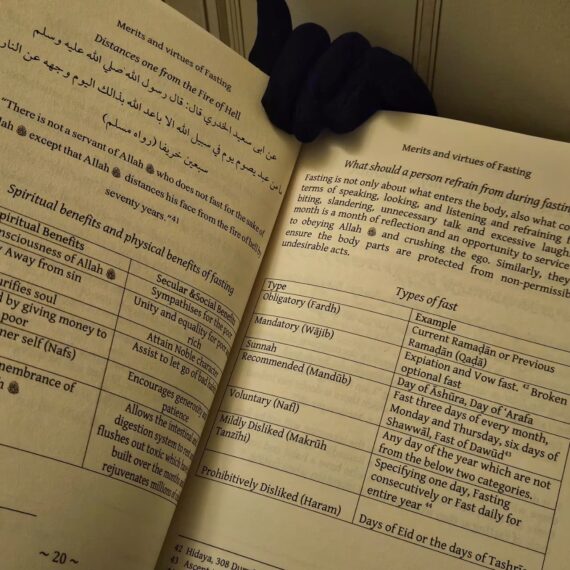 Merits and virtues of Fasting
Distances one from the Fire of Hell
عن ابى سعيد الخدري قال: قال رسول الله صلي الله عليه وسلم
ما من عبد يصوم يوم في سبيل الله الا باعد الله بذالك اليوم وجهه عن النار
سبعين خريفا (رواه مسلم)
"There is not a servant of Allah who does not fast for the sake of
Allah except that Allah distances his face from the fire of hell by
seventy years."41
Spiritual benefits and physical benefits of fasting
Spiritual Benefits
Secular &Social Benefits
Consciousness of Allah
Sympathises for the poor
Away from sin
Unity and equality for poor
rich
Purifies soul
Attain Noble character
by giving money to
poor
Assist to let go of bad
inner self (Nafs)
Encourages generosity
patience
remembrance of
Allows the intestinal
digestion system to rest
flushes out toxic which
built over the month
rejuvenates millions of
~ 20 ~
Merits and virtues of Fasting
What should a person refrain from during fasting
Fasting is not only about what enters the body, also what
terms of speaking, looking, and listening and refraining
biting, slandering, unnecessary talk and excessive
month is a month of reflection and an opportunity to
to obeying Allah and crushing the ego. Similarly, they
ensure the body parts are protected from
undesirable acts.
Types of fast
Type
Example
Obligatory (Fardh)
Current Ramaḍān or Previous
Ramaḍān (Qaḍā)
Mandatory (Wājib)
Expiation and Vow fast. 42 Broken
optional fast
Sunnah
Day of Āshūra, Day of 'Arafa
Recommended (Mandūb)
Fast three days of every month,
Monday and Thursday, six days of
Shawwāl, Fast of Dawūd43
Voluntary (Nafl)
Any day of the year which are not
from the below two categories.
Mildly Disliked (Makrūh
Tanzīhi)
Specifying one day, Fasting
consecutively or Fast daily for
entire year 44
Prohibitively Disliked (Haram)
Days of Eid or the days of
42 Hidaya, 308
43
44